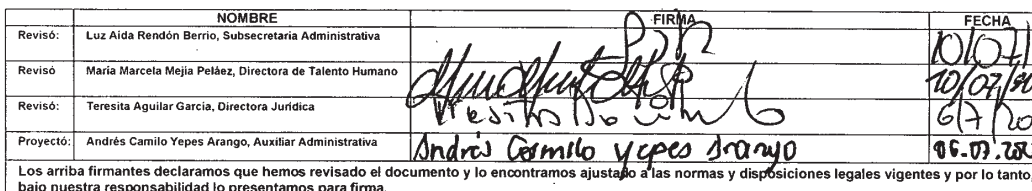 NOMBRE FIRMA FECHA
Revisó: Luz Aida Rendón Berrio, Subsecretaria Administrativa 10/07/
Revisó María Marcela Mejía Peláez, Directora de Talento Humano 10/07/20
Revisó: Teresita Aguilar García, Directora Jurídica 6/7/20
Proyectó: Andrés Camilo Yepes Arango, Auxiliar Administrativa Andrés Camilo Yepes Arango 06.07.202
Los arriba firmantes declaramos que hemos revisado el documento y lo encontramos ajustado a las normas y disposiciones legales vigentes y por lo tanto,
bajo nuestra responsabilidad lo presentamos para firma.